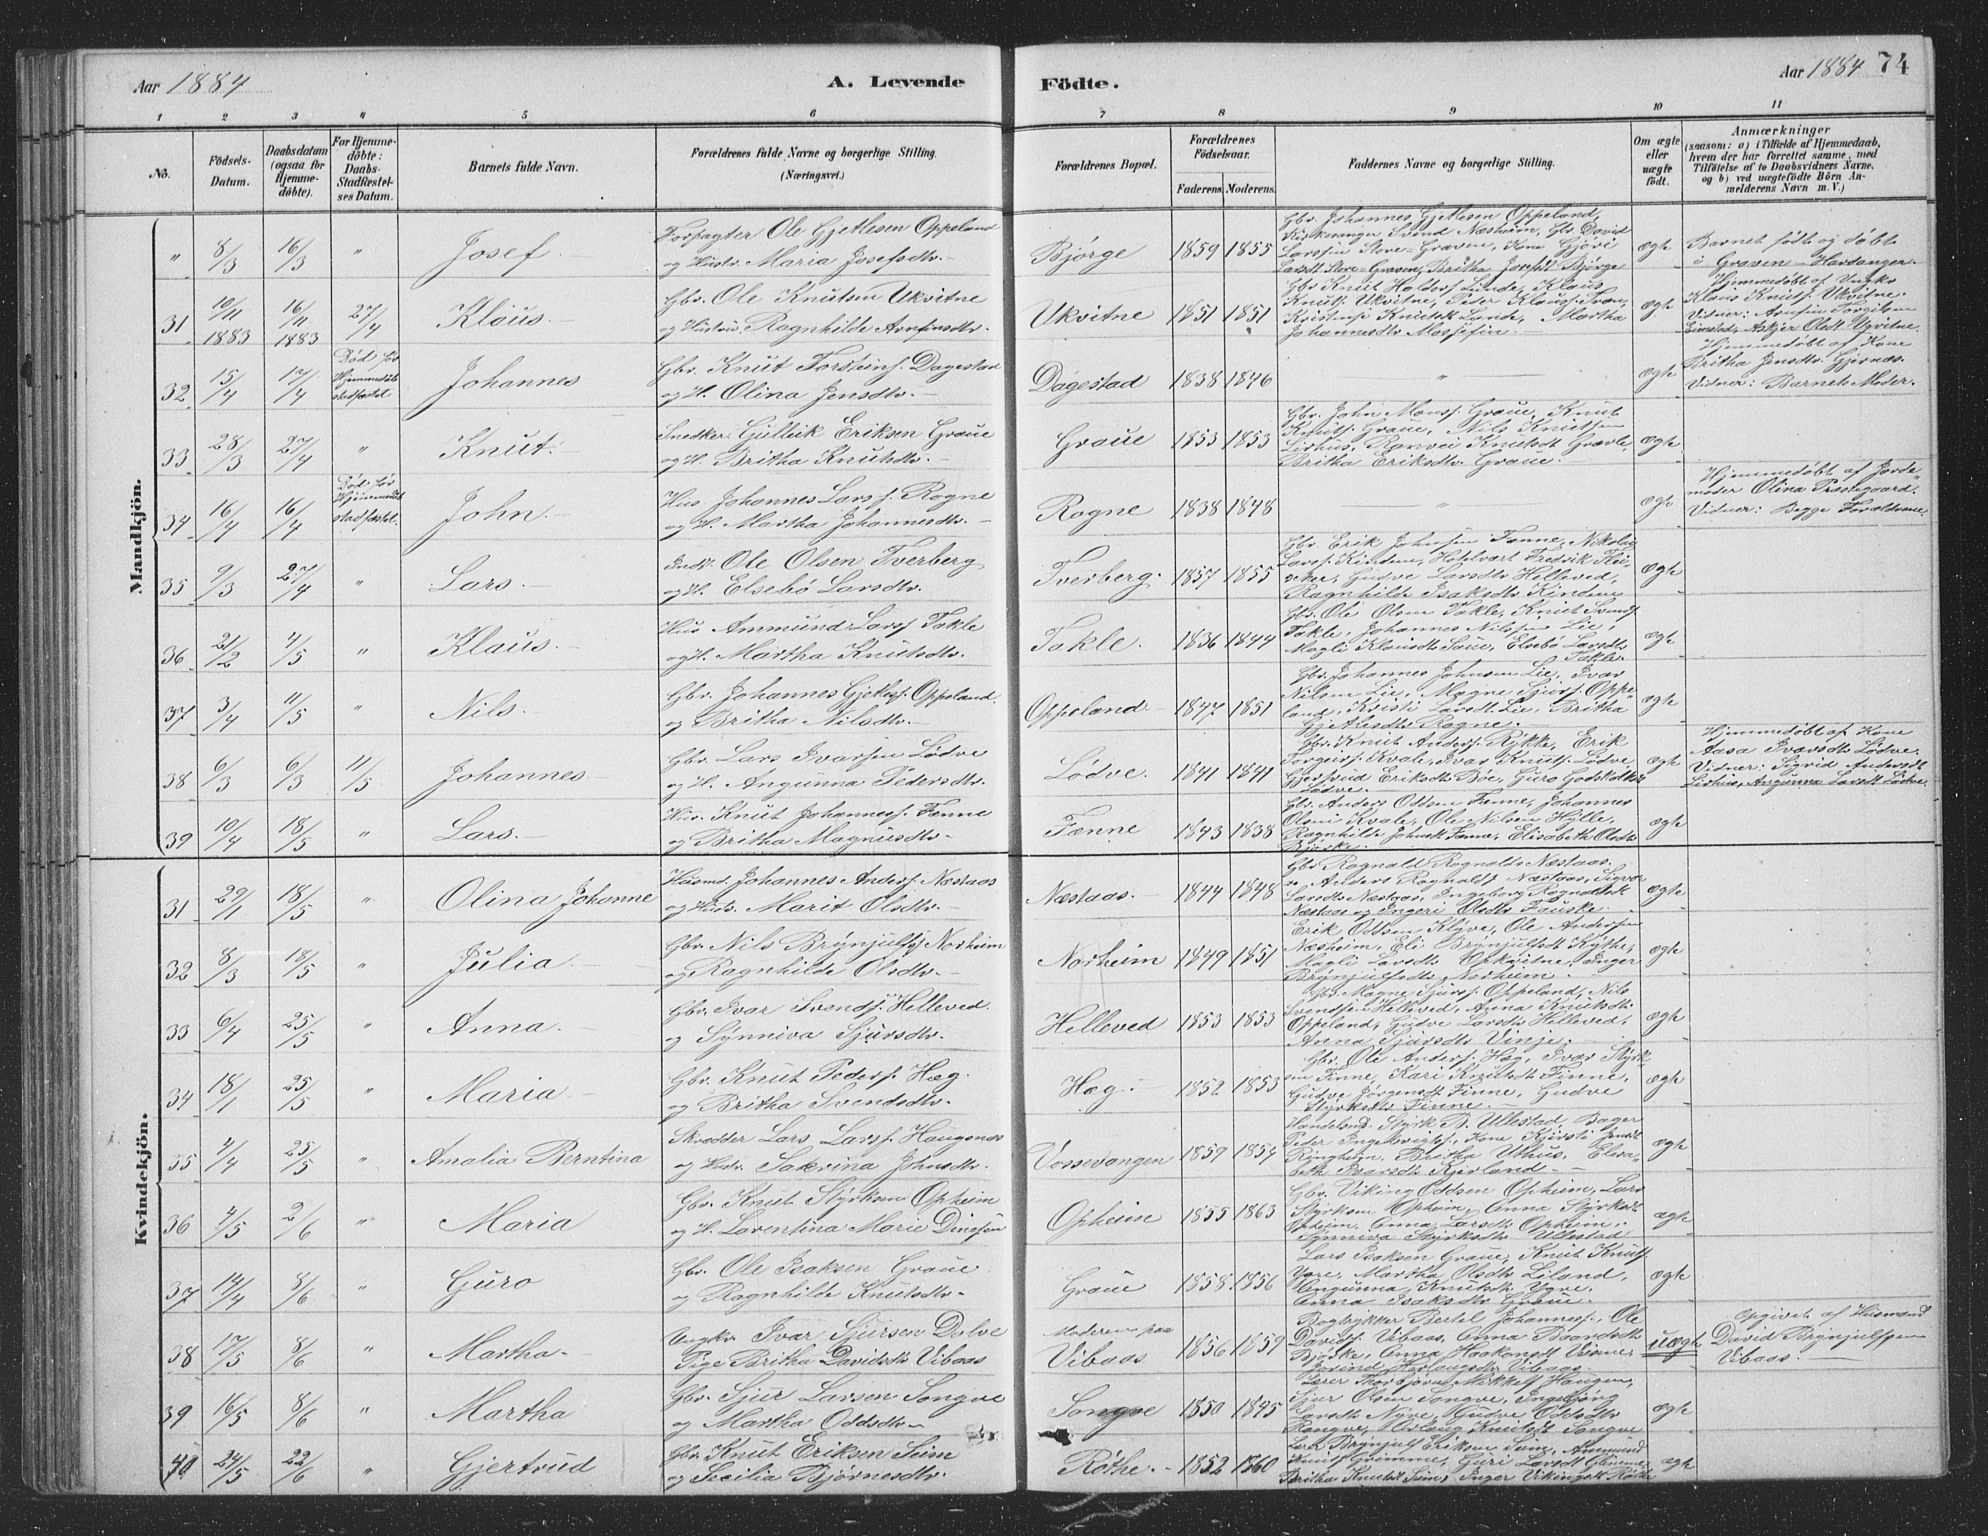 Aar 1884
A. Levende
Födte.
Aar 1884 74
1 2 3 4 5 6 7 8 9 10 11
No.
Födsels-Datum.
Daabsdatum (ogsaa for Hjemmedöbte).
For Hjemmedöbte: Daabs-Stadfæstelses Datum.
Barnets fulde Navn.
Forældrenes fulde Navne og borgerlige Stilling.
(Næringsvei.)
Forældrenes Bopæl.
Forældrenes Födselsaar.
Faderens. Moderens.
Faddernes Navne og borgerlige Stilling.
Om ægte eller uægte födt.
Anmærkninger
(saasom: a) i Tilfælde af Hjemmedaab, hvem der har forrettet samme, med Tilföielse af to Daabsvidners Navne, og b) ved uægtefödte Börn Anmelderens Navn m. V.)
Mandkjön.
" 8/3 16/3 " Josef. Forpagter Ole Gjetlesen Oppeland
og Hustr. Maria Josefsdtr. Bjørge 1859 1855
Gbr. Johannes Gjetlesen Oppeland,
Kirkesanger Svend Næsheim, Gbr David
Larssen Store-Graven, Kone Gjøri
Larsdt Store-Graven, Britha Josefsdt Bjørge
ægte Barnet født og døbt
i Graven Hardanger.
31 10/11 1883 16/11 1883 27/4 Klaus. Gbr. Ole Knutsen Ukvitne
og Hustru Ragnhilde Arnfinsdtr. Ukvitne 1851 1851
Knuts. Ukvitne, Peder Klauss. Tvan,
Johannesdtr Mossefin
ægte Hjemmedøbt af Ungkr
Klaus Knuts. Ukvitne.
32 15/4 17/4 Død før Hjemmedåb stadfæstet Johannes Gbr. Knut Torsteins. Dagestad
og H. Olina Jensdtr. Dagestad 1838 1846 " ægte
Hjemmedøbt af Kone
Britha Jensdtr. Gjernæs.
Vidner: Barnets Moder.
33 28/3 27/4 " Knut. Snedker Gulleik Eriksen Graue
og H. Britha Knutsdtr. Graue 1853 1853
Gbr. John Monss. Graue, Knut
Knuts. Graue, Nils Knutsen
Lirhus, Ranvei Knutsdt Gravle,
Britha Eriksdtr. Graue. ægte
34 16/4 16/4 Død før Hjemmedåb stadfæstet. John. Hus. Johannes Larss. Rogne
og H. Martha Johannesdtr. Rogne 1838 1848 " ægte
Hjemmedøbt af Jorde
moder Olina Præstegaard.
Vidner: Begge Forældrene
35 9/3 27/4 " Lars. Inds. Ole Olsen Tverberg
og H. Elsebö Larsdtr. Tverberg. 1857 1855
Gbr. Erik Johnsen Fenne, Nikolai
Larss. Kindem, Hotelvært Fredrik Flei
scher, Gudve Larsdtr Helleved,
Ragnhilde Isaksdtr Kindem ægte
36 21/2 4/5 " Klaus. Hus Ammund Larss Takle
og H. Martha Knutsdtr. Takle. 1836 1844
Gbr. Ole Olsen Takle, Knut Svends
Takle, Johannes Nilssen Lie,
Magli Klausdtr Saue, Elsebö Larsdtr
Takle. ægte
37 3/4 11/5 " Nils. Gbr. Johannes Gjetless. Oppeland.
og Britha Nilsdtr. Oppeland 1847 1851
Gbr. Johannes Johnsen Lie, Ivar
Nilsen Lie, Magne Sjurs. Oppe
land, Kristi Larsdt. Lie, Britha
Gjetlesdtr Rogne. ægte
38 6/3 6/3 11/5 Johannes. Gbr. Lars Ivarsen Lødve
og H. Angunna Pedersdtr. Lødve. 1841 1841
Gbr. Knut Anders. Rykke, Erik
Torgeirs. Kvale, Ivar Knuts. Lødve,
Gjertrud Eriksdtr Bøe, Guro
Lødve. ægte
Hjemmedøbt af Kone
Aasa Ivarsdtr Lødve.
Vidner: Sigrid Andersdt
Lirhus, Angunna Larsdt Lødve
39 10/4 18/5 " Lars. Hus. Knut Johanness. Fenne
og Britha Magnusdtr. Fenne 1843 1838
Gbr. Anders Oddsen Fenne, Johannes
Olsen Kvale, Ole Nilsen Hille,
Ragnhilde Johnsdt Fenne, Elisabeth Olsdtr
Bjørke. ægte
Kvindekjön.
31 29/1 18/5 " Olina Johanne Husmd. Johannes Anders. Næstaas
og Hustr. Marit Olsdtr. Næstaas. 1844 1848
Gbr Ragnald Ragnalds Næstaas.
Anders Ragnalds Næstaas,
Larsdtr Næstaas, Ingeborg Ragnaldsdt
Næstaas og Ingeri Olsdtr Fauske. ægte
32 8/3 18/5 " Julia Gbr. Nils Brynjulfs. Norheim
og Ragnhilde Olsdtr. Norheim 1849 1851
Erik Oddsen Klyve, Ole Andersen
Næsheim, Eli Brynjulfsdt Kythe,
Magli Larsdtr Urkvitne, Inger
Brynjulfsdtr Norheim. ægte
33 6/4 25/5 " Anna. Gbr. Ivar Svends. Helleved.
og Synniva Sjursdtr. Helleved 1853 1853
Gbr. Magne Sjurs. Oppeland, Nils
Svendsen Helleved, Anna Knutsdtr.
Oppeland, Gudve Larsdtr Helleved,
Anna Sjursdtr Vinje. ægte
34 18/1 25/5 " Maria Gbr. Knut Peders. Hæg.
og Britha Svendsdtr. Hæg. 1852 1853
Gbr. Ole Anders. Hæg, Ivar Styrk
sen Finne, Kari Knutsdtr Finne,
Gudve Jørgensdt Finne, Gudve
Styrksdtr Finne. ægte
35 4/4 25/5 " Amalia Berntina Skrædder Lars Larss. Haugsnæs
og Hustr. Sakrina Johnsdtr. Vossevangen 1859 1859
Handelsmd. Styrk B. Ullestad, Bager
Peder Ingebrigts., Kone Kjersti Jensdt
Ringheim, Britha Uthus, Elisa
beth Ivarsdtr Kjørland. ægte
36 4/5 2/6 " Maria Gbr. Knut Styrksen Opheim
og H. Lorentina Marie Dinesen Opheim 1855 1863
Gbr. Viking Oddsen Opheim, Lars
Styrksen Opheim, Anna Styrksdt
Opheim, Anna Larsdtr Opheim,
Synniva Styrksdtr Ullestad ægte
37 14/4 8/6 " Guro Gbr. Ole Isaksen Graue
og Ragnhilde Knutsdtr. Graue 1858 1856
Lars Isaksen Graue, Knut Knuts
Ygre, Martha Olsdtr Liland,
Angunna Knutsdt Ygre,
Anna Isaksdtr Graue. ægte
38 17/5 8/6 " Martha. Ungkr. Ivar Sjursen Dolve
Pige Britha Davidsdtr Vibaas Moderen paa Vibaas 1856 1859
Bogtrykker Bertel Johanness., Ole
Davids. Vibaas, Anna Baardsdtr
Bjørke, Anna Haakonsdt
uægte
Opgivet af Husmand
David Brynjulfsen
Vibaas.
39 16/5 8/6 " Martha Gbr. Sjur Larsen Songve
og Martha Oddsdtr. Songve 1850 1845
Lærer Thorbjørn Mikkels Haugen,
Sjur Olsen Songve, Ingebjørg
Larsdtr Nyre, Gudve Oddsdtr
Rongve, Herlaug Knutsdt Songve ægte
40 24/5 22/6 " Gjertrud Gbr. Knut Eriksen Seim
og Secilia Björnesdtr. Röthe. 1852 1860
Lars Brynjulf Eriksen Seim, Ammund
Knuts Grimme, Guri Larsdt Glimme,
Britha Knutsdt Seim, Inger Vikingsdt Röthe ægte